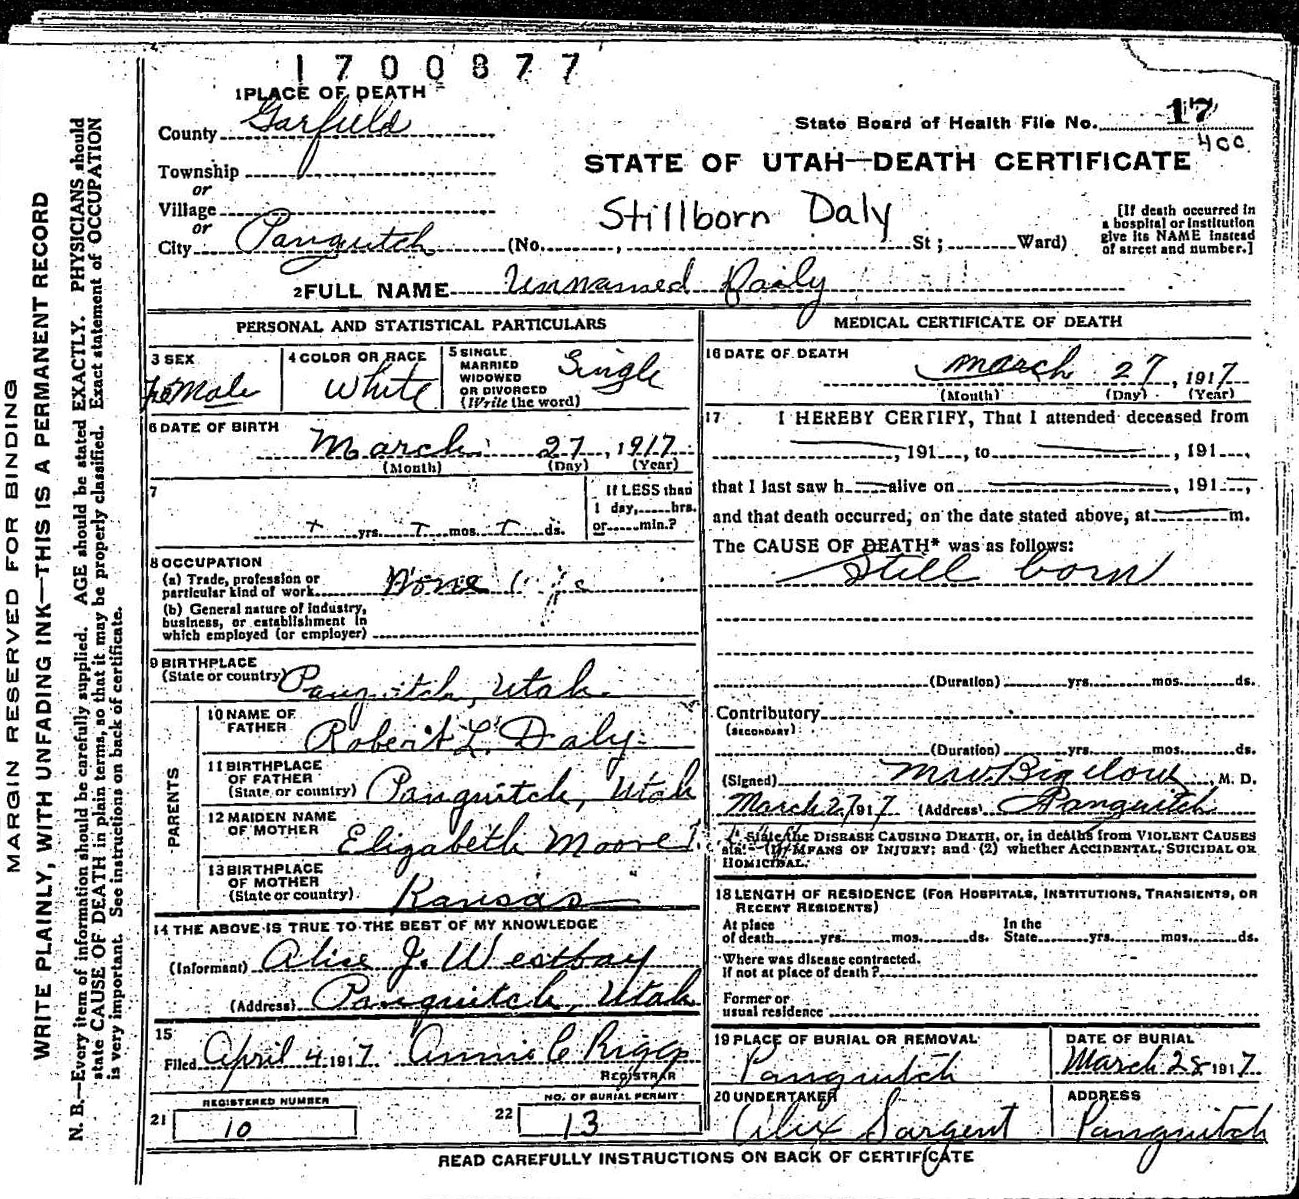 1700877
1 PLACE OF DEATH
County Garfield
State Board of Health File No. 17
400
Township
STATE OF UTAH—DEATH CERTIFICATE
or
Village
or
City Panguitch (No. , St; Ward)
Stillborn Daly
[If death occurred in
a hospital or institution
give its NAME instead
of street and number.]
2 FULL NAME Unnamed Daily
PERSONAL AND STATISTICAL PARTICULARS
3 SEX
FeMale
4 COLOR OR RACE
White
5 SINGLE
MARRIED
WIDOWED
OR DIVORCED
(Write the word)
Single
6 DATE OF BIRTH
March 27, 1917
(Month) (Day) (Year)
7
yrs. mos. ds.
If LESS than
1 day, hrs.
or min.?
8 OCCUPATION
(a) Trade, profession or
particular kind of work None
(b) General nature of industry,
business, or establishment in
which employed (or employer)
9 BIRTHPLACE
(State or country) Panguitch, Utah
PARENTS
10 NAME OF
FATHER Robert L. Daly
11 BIRTHPLACE
OF FATHER
(State or country) Panguitch, Utah
12 MAIDEN NAME
OF MOTHER Elizabeth Moore
13 BIRTHPLACE
OF MOTHER
(State or country) Kansas
14 THE ABOVE IS TRUE TO THE BEST OF MY KNOWLEDGE
(Informant) Alice J. Westbay
(Address) Panguitch, Utah
15
Filed April 4 1917 Annie C Riggs
REGISTRAR
REGISTERED NUMBER
21 10
NO. OF BURIAL PERMIT
22 13
MEDICAL CERTIFICATE OF DEATH
16 DATE OF DEATH
March 27, 1917
(Month) (Day) (Year)
17 I HEREBY CERTIFY, That I attended deceased from
, 191 , to , 191 ,
that I last saw h alive on , 191 ,
and that death occurred, on the date stated above, at m.
The CAUSE OF DEATH* was as follows:
Still born
(Duration) yrs. mos. ds.
Contributory
(SECONDARY)
(Duration) yrs. mos. ds.
(Signed) M W Bigelow, M. D.
March 27 1917 (Address) Panguitch
* State the DISEASE CAUSING DEATH, or, in deaths from VIOLENT CAUSES
state (1) MEANS OF INJURY; and (2) whether ACCIDENTAL, SUICIDAL OR
HOMICIDAL.
18 LENGTH OF RESIDENCE (FOR HOSPITALS, INSTITUTIONS, TRANSIENTS, OR
RECENT RESIDENTS)
At place In the
of death yrs. mos. ds. State yrs. mos. ds.
Where was disease contracted.
If not at place of death?
Former or
usual residence
19 PLACE OF BURIAL OR REMOVAL
Panguitch
DATE OF BURIAL
March 28 1917
20 UNDERTAKER
Alex Sargent
ADDRESS
Panguitch
READ CAREFULLY INSTRUCTIONS ON BACK OF CERTIFICATE
MARGIN RESERVED FOR BINDING
WRITE PLAINLY, WITH UNFADING INK—THIS IS A PERMANENT RECORD
N. B.—Every item of information should be carefully supplied. AGE should be stated EXACTLY. PHYSICIANS should
state CAUSE OF DEATH in plain terms, so that it may be properly classified. Exact statement of OCCUPATION
is very important. See instructions on back of certificate.